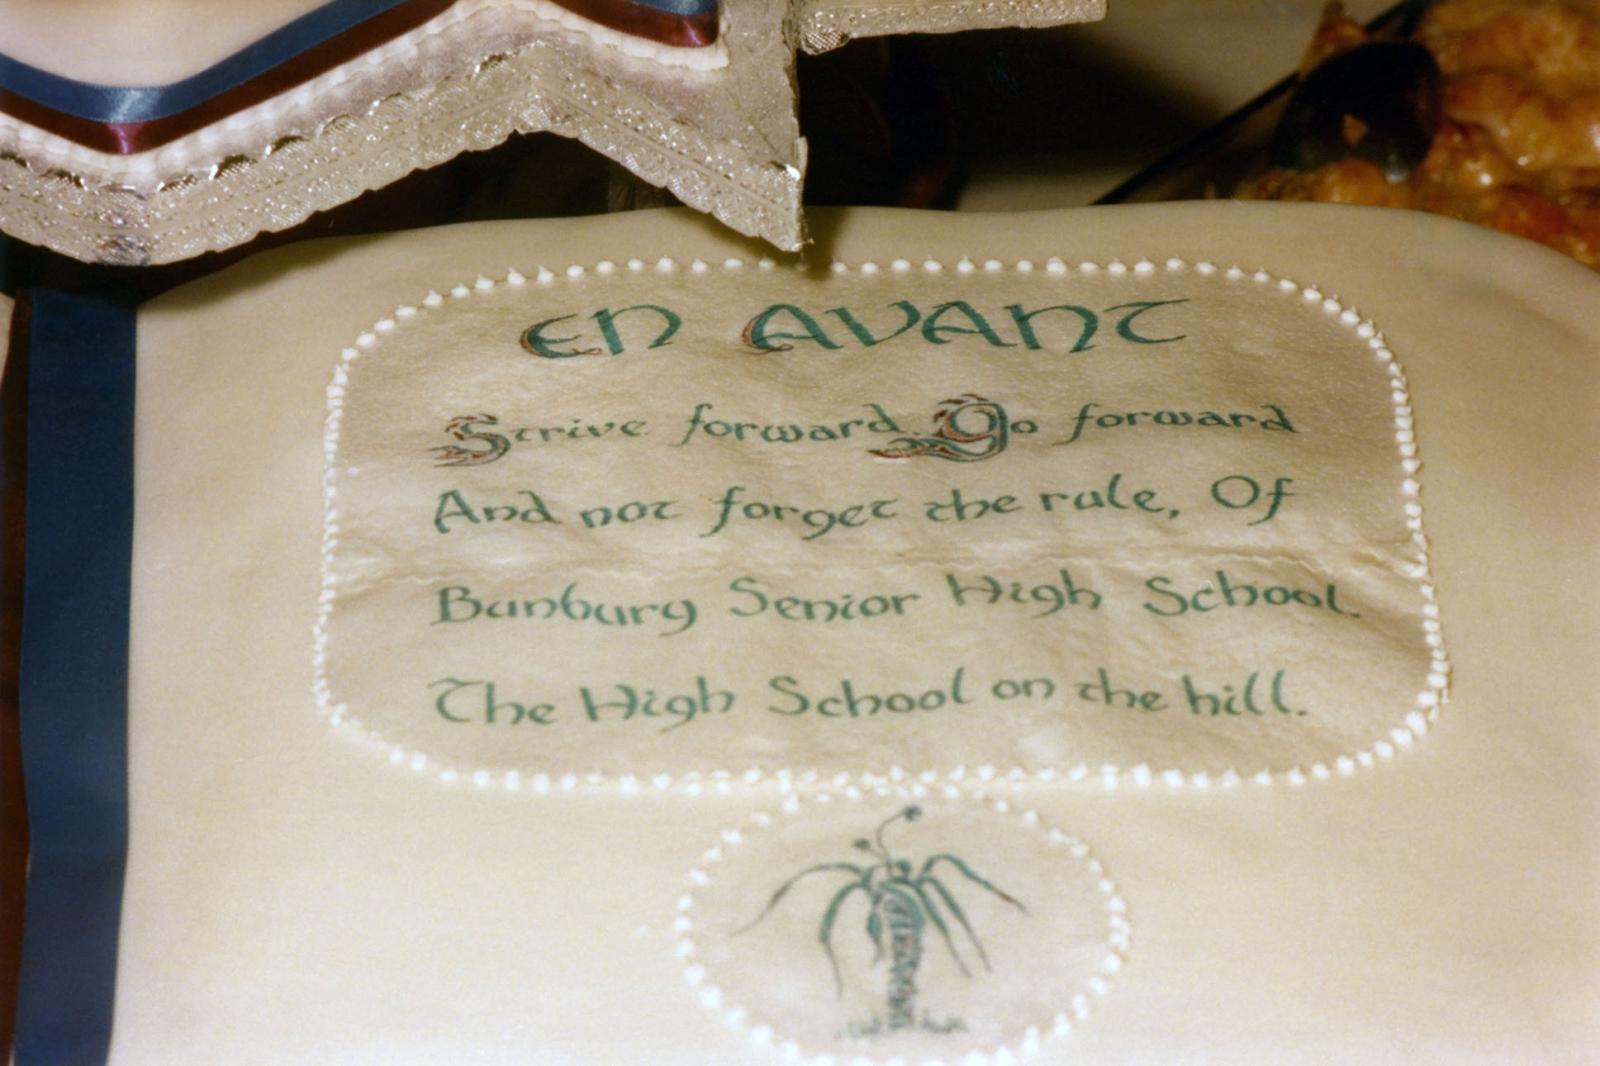 EN AVANT
Strive forward. Go forward
And not forget the rule, Of
Bunbury Senior High School.
The High School on the hill.